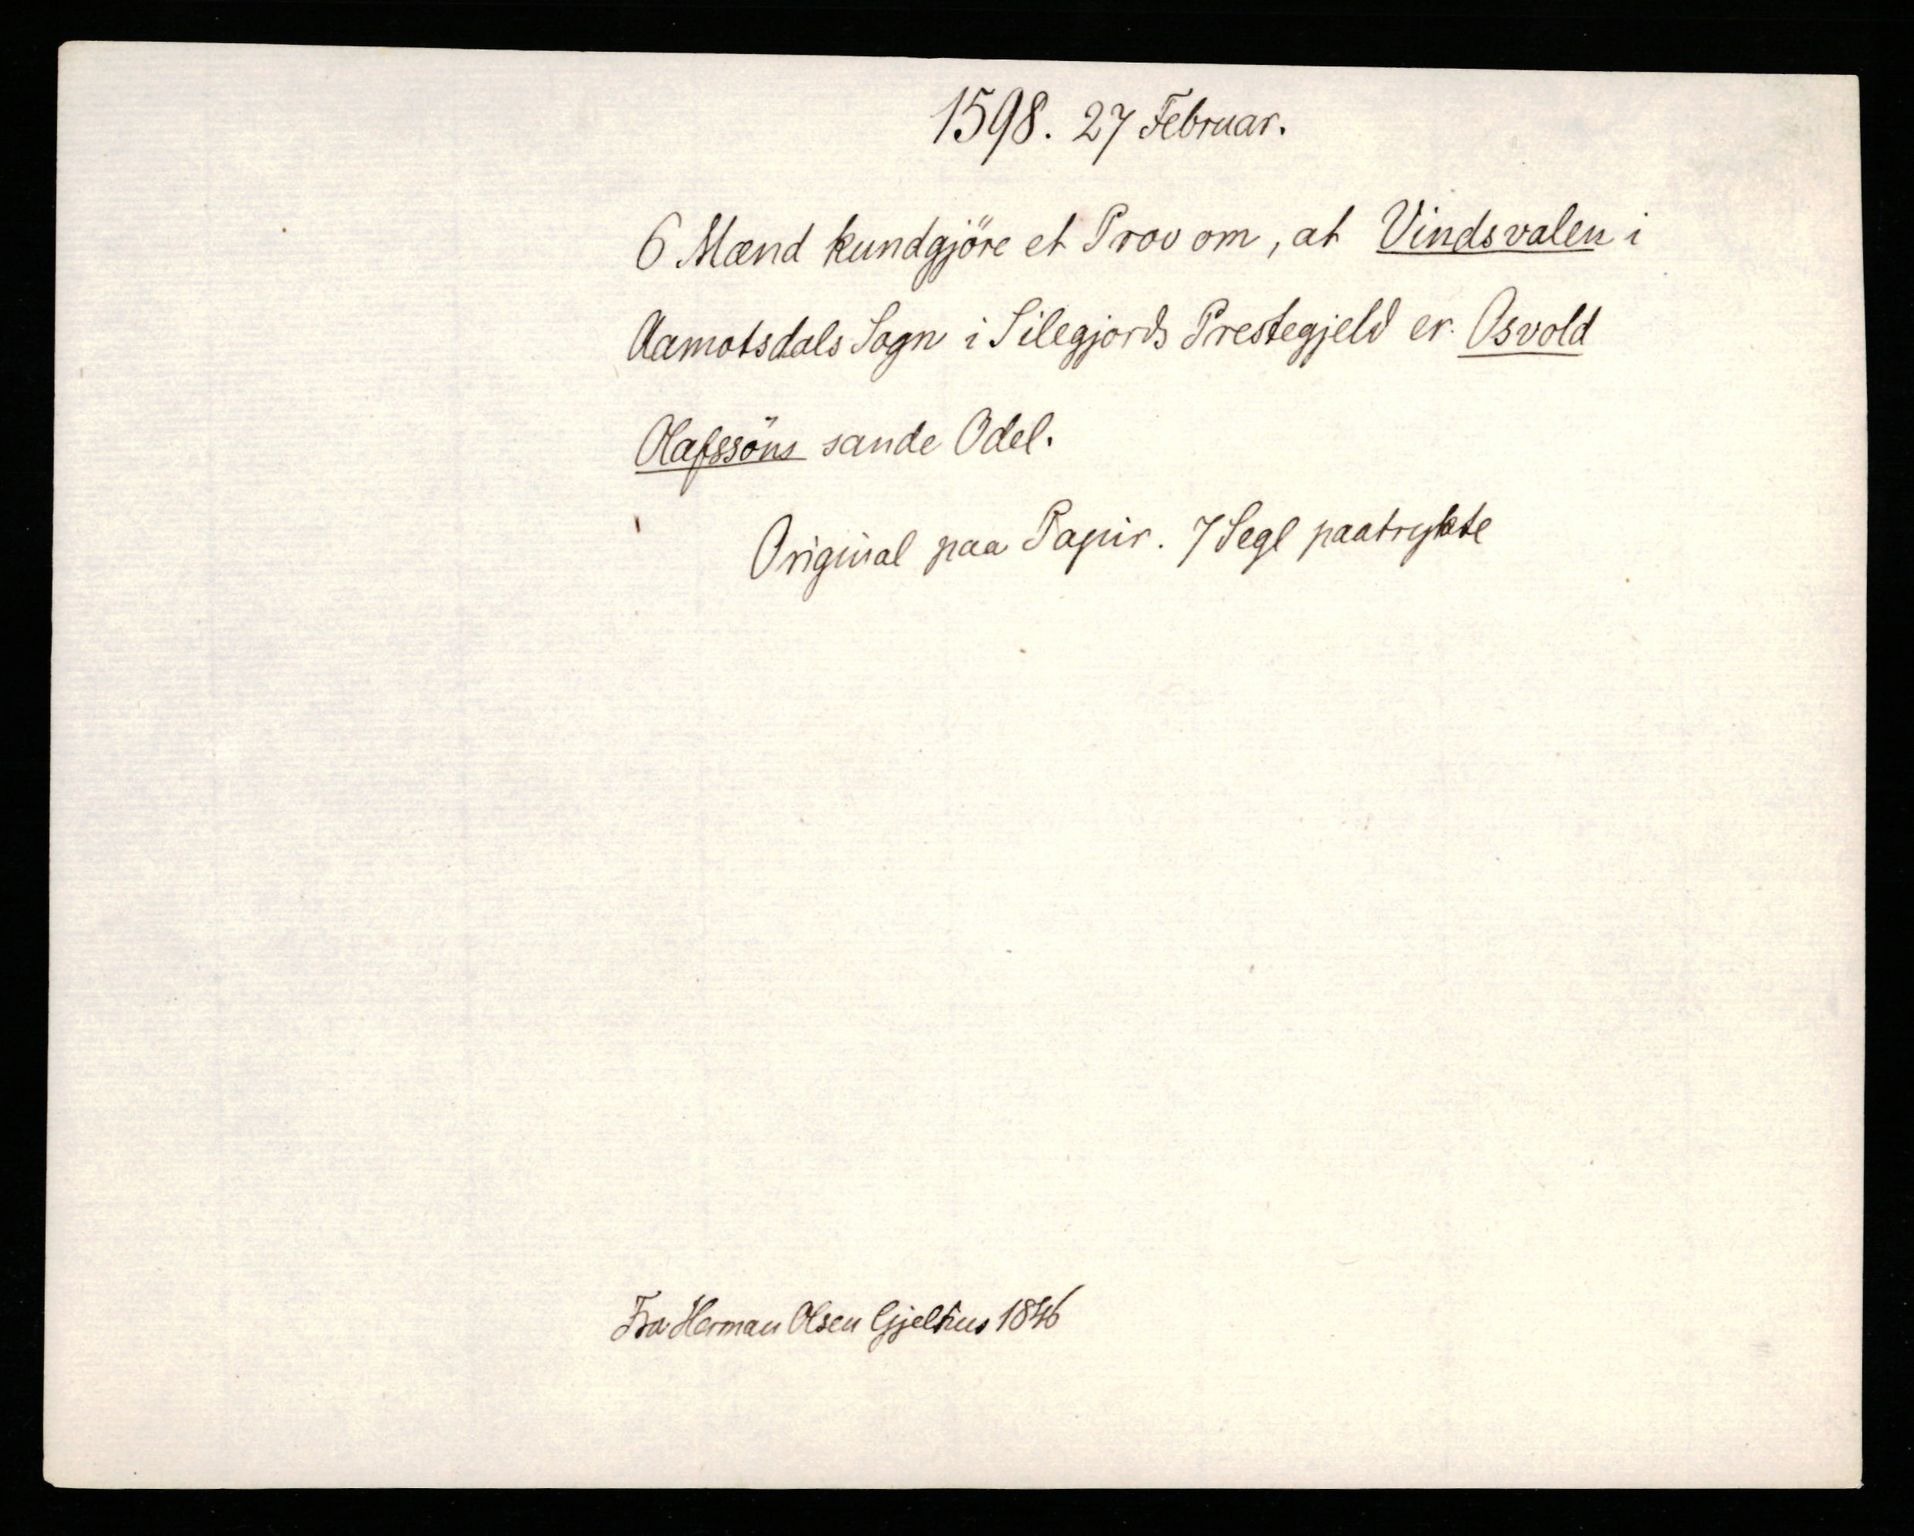 1598. 27 Februar.
6 Mænd kundgjöre et Prov om, at Vindsvalen i
Aamotsdals Sogn i Silegjords Prestegjeld er Osvold
Olafssöns sande Odel.
Original paa Papir. 7 Segl paatrykte
Fra Herman Olsen Gjelhus 1846